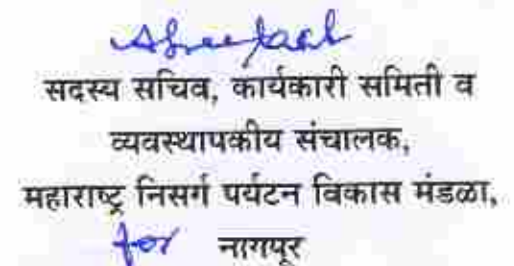 सदस्य सचिव, कार्यकारी समिती व
व्यवस्थापकीय संचालक,
महाराष्ट्र निसर्ग पर्यटन विकास मंडळा,
for नागपूर